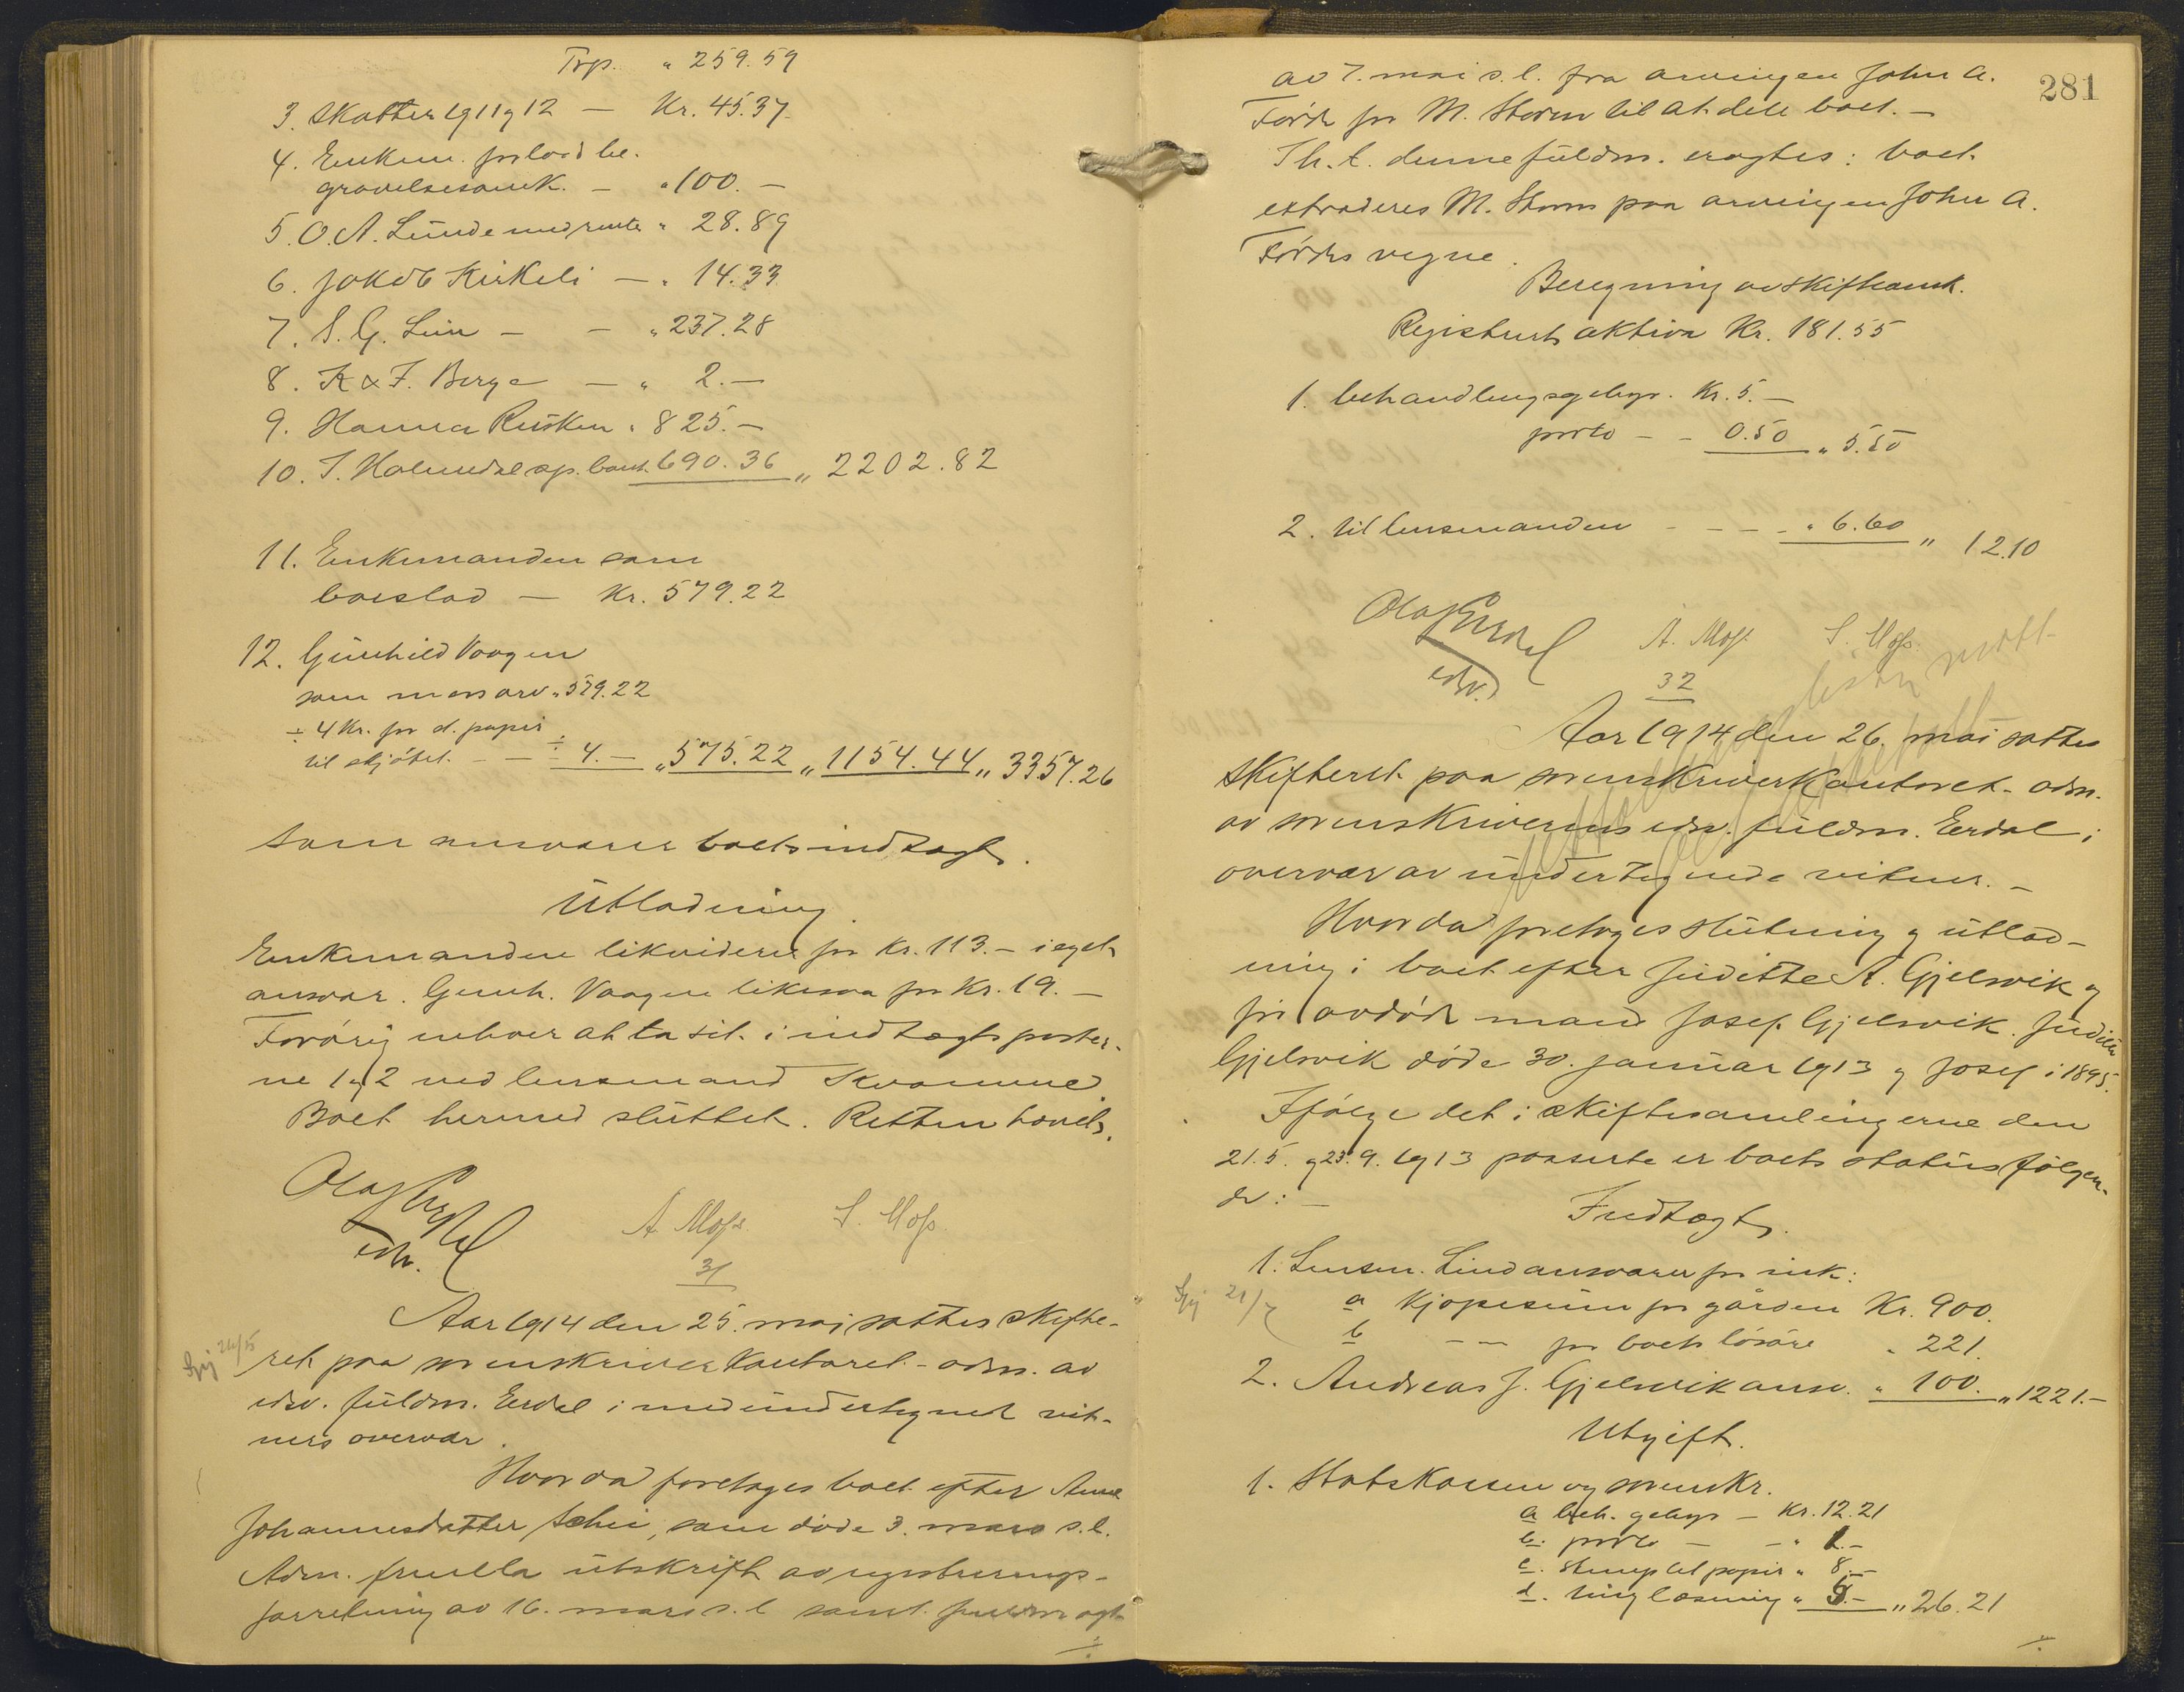 Trp. " 259.59
3. Skatter 1911 g 12 — Kr. 45.37
4. Enkem. forlods be-
gravelsesomk. — " 100. —
5. O. A. Lunde med rente " 28.89
6. Jakob Kirkeli — " 14.33
7. S. G. Lein — — " 237.28
8. K & F. Berge — " 2. —
9. Hanna Rusken " 825. —
10. I. Holmedal sp. bank 690.36 " 2202.82
11. Enkemanden som
boeslod — Kr. 579.22
12. Gunhild Vaagen
som morsarv " 579.22
÷ 4 Kr. for st. papir
til skjøtet. — — ÷ 4. — " 575.22 " 1154.44 " 3357.26
som ansvarer boets indtægt.
Utlodning.
Enkemanden likviderer for Kr. 113. — i eget
ansvar. Gunh. Vaagen likesaa for Kr. 19. —
Forøvrig enhver at ta sit i indtægtsposter-
ne 1 g 2 ved lensmand Kvamme.
Boet hermed sluttet. Retten hævet.
Olaf Erdal
edsv.
A. Moss. S. Moss.
31
Aar 1914 den 25. mai sattes skifte-
Gj 26/5
ret paa sorenskriverkontoret - adm. av
edsv. fuldm. Erdal i medundertegned vit-
ners overvær.
Hvorda foretoges boet efter Anne
Johannesdatter Schei, som døde 3. mars s.l.
Adm. fremla utskrift av registrerings-
forretning av 16. mars s.l. samt fuldmagt
./.
281
av 7. mai s.l. fra arvingen John A.
Førde for M. Storm til at dele boet. —
Ih. t. denne fuldm. eragtes: boet
extraderes M. Storm paa arvingen John A.
Førdes vegne.
Beregning av skifteomk.
Registrert aktiva Kr. 181.55
1. behandlingsgebyr. Kr. 5. —
porto — - 0.50 " 5.50
2. til lensmanden - - - - " 6.60 " 12.10
Olaf Erdal
edsv.
A. Moss. S. Moss.
32
Aar 1914 den 26. mai sattes
skifteret paa sorenskriverkontoret - adm.
av sorenskriverens edsv. fuldm. Erdal i
overvær av undertegnede vitner. —
Hvorda foretoges slutning g utlod-
ning i boet efter Juditte A. Gjelsvik g
før avdøde mand Josef Gjelsvik. Juditte
Gjelsvik døde 30. januar 1913 g Josef i 1895.
Ifølge det i skiftesamlingerne den
21.5. g 23.9. 1913 passerte er boets status følgen-
de: —
Indtægt.
1. Lensm. Lind ansvarer for ink:
Gj 21/7
a Kjøpesum for gården Kr. 900.
b — — for boets løsøre " 221.
2. Andreas J. Gjelsvik ansv. " 100. " 1221. —
Utgift.
1. Statskassen og sorenskr.
a beh. gebyr — Kr. 12.21
b. porto — - " 1. —
c. stemplet papir " 8. —
d. tinglæsning " 5. — " 26.21
./.